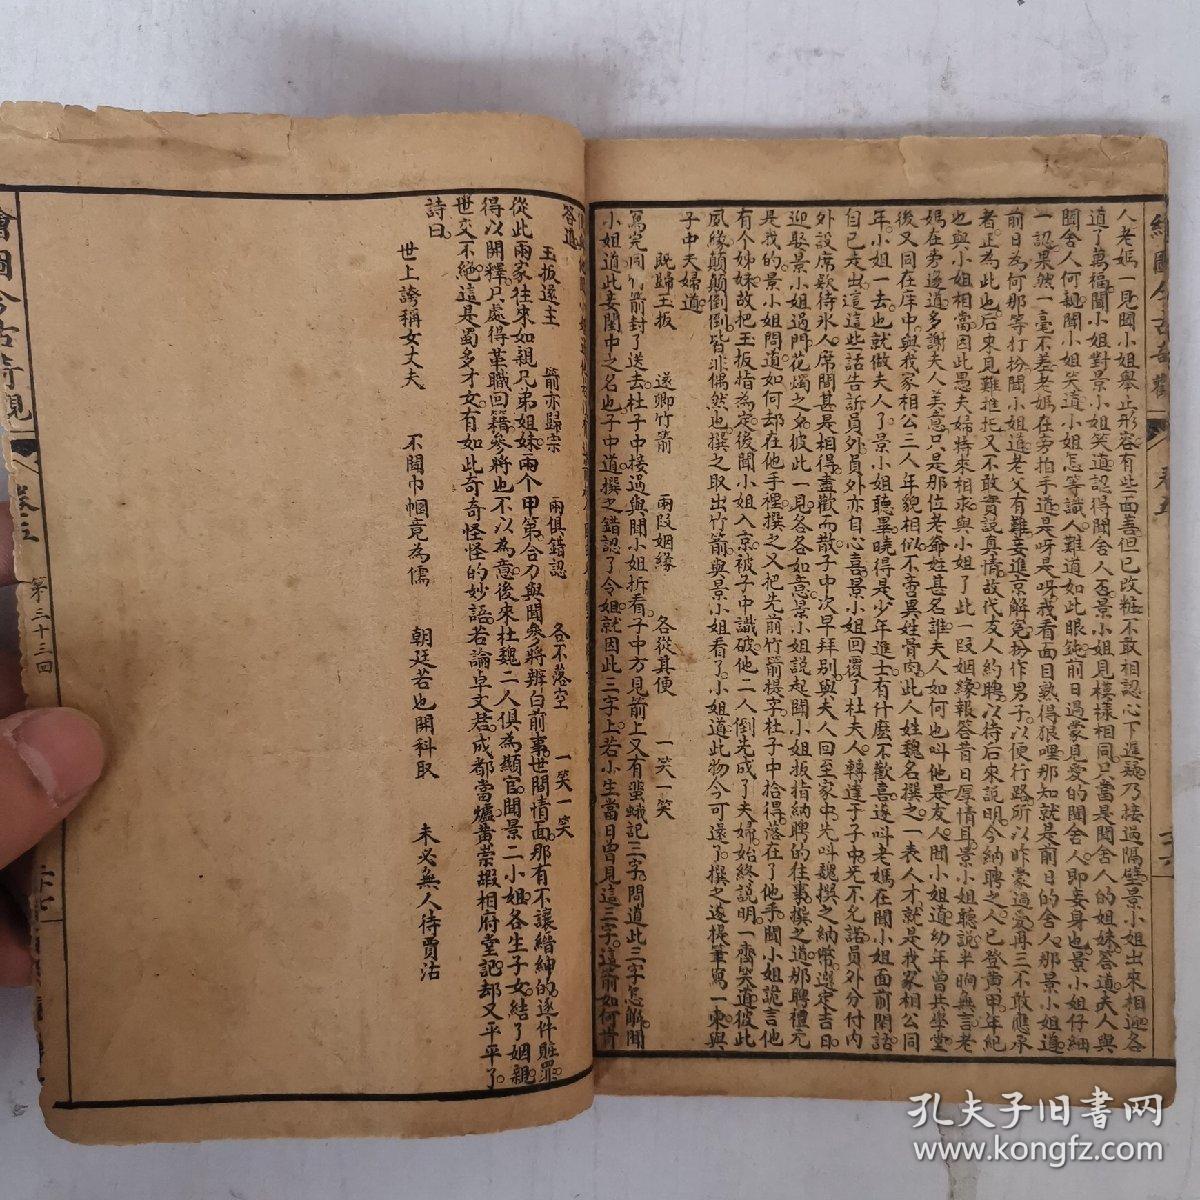 人老媽一見聞小姐舉止形容有些面善但已改粧不敢相認心下進疑乃接過隔壁景小姐出來相迎各
道了萬福聞小姐對景小姐笑道認得聞舍人否景小姐見模樣相同只當是聞舍人的姐妹答道夫人與
聞舍人何親聞小姐笑道小姐怎等識人難道如此眼鈍前日過蒙見愛的聞舍人即妾身也景小姐仔細
一認果然一毫不差老媽在旁拍手道是呀是呀我看面目熟得狠哩那知就是前日的舍人那景小姐道
前日為何那等打扮聞小姐道老父有難妾進京解冤扮作男子以便行路所以昨蒙過愛再三不敢應承
者正為此也后來見難推托又不敢實說真情故代友人約聘以待后來說明今納聘之人已登黃甲年紀
也與小姐相當因此愚夫婦特來相求與小姐了此一段姻緣報答昔日厚情耳景小姐聽說半晌無言老
媽在旁邊道多謝夫人美意只是那位老爺姓甚名誰夫人如何也叫他是友人聞小姐道幼年曾共學堂
後又同在庠中與我家相公三人年貌相似不啻異姓骨肉此人姓魏名撰之一表人才就是我家相公同
年小姐一去也就做夫人了景小姐聽畢曉得是少年進士有什麼不歡喜遂叫老媽在聞小姐面前閑話
自己走出這這些話告訴員外員外亦自心喜景小姐回覆了杜夫人轉達于子中先不允諾員外分付內
外設席款待氷人席間甚是相得盡歡而散子中次早拜別與夫人回至家中先叫魏撰之納幣選定吉日
迎娶景小姐過門花燭之夕彼此一見各各如意景小姐說起聞小姐扳指納聘的往事撰之道那聘禮元
是我的景小姐問道如何却在他手裡撰之又把先前竹箭棳字杜子中拾得落在了他手聞小姐詭言他
有個姊妹故把玉扳指為定後聞小姐入京被子中識破他二人倒先成了夫婦始終說明一齊笑道彼此
風緣顛顛倒倒皆非偶然也撰之取出竹箭與景小姐看了小姐道此物今可還了撰之遂棳筆寫一柬與
子中夫婦道
既歸玉扳 送卿竹箭 兩段姻緣 各從其便 一笑一笑
寫完同竹箭封了送去杜子中接過與聞小姐折看子中方見箭上又有蜚蛾記三字問道此三字怎解聞
小姐道此妾閨中之名也子中道撰之錯認了令姐就因此三字上若小生當日曾見這三字這箭如何肯
答道
玉扳還主 箭亦歸宗 兩俱錯認 各不落空 一笑一笑
從此兩家往來如親兄弟姐妹兩个甲第合力與聞參將辨白前事世間情面那有不讓縉紳的逐件賍罪
得以開釋只處得革職回籍參將也不以為意後來杜魏二人俱為顯官聞景二小姐各生子女結了姻親
世交不絕這是蜀多才女有如此奇奇怪怪的妙語若論卓文君成都當爐黃崇嘏相府堂記却又平平了
詩曰
世上誇稱女丈夫 不聞巾幗竟為儒 朝廷若也開科取 未必無人待賈沽
繪圖今古奇觀 卷三 第三十三回
孔夫子旧书网
www.kongfz.com